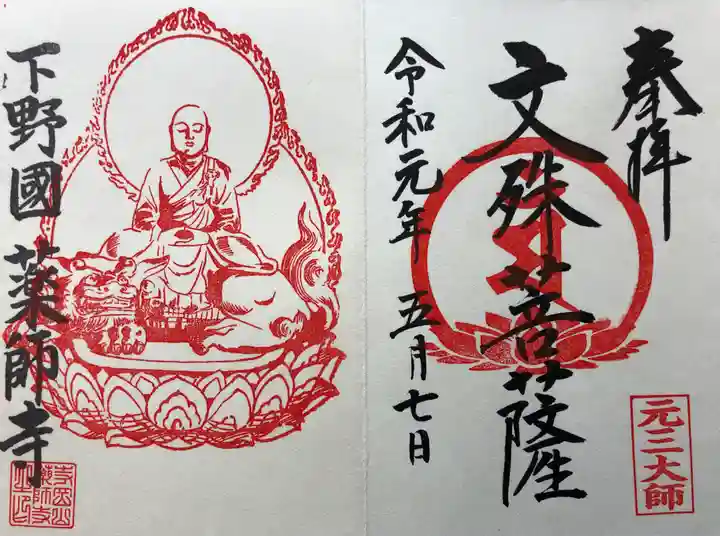 奉拝
文殊菩薩
令和元年 五月七日
元三大師
下野國薬師寺